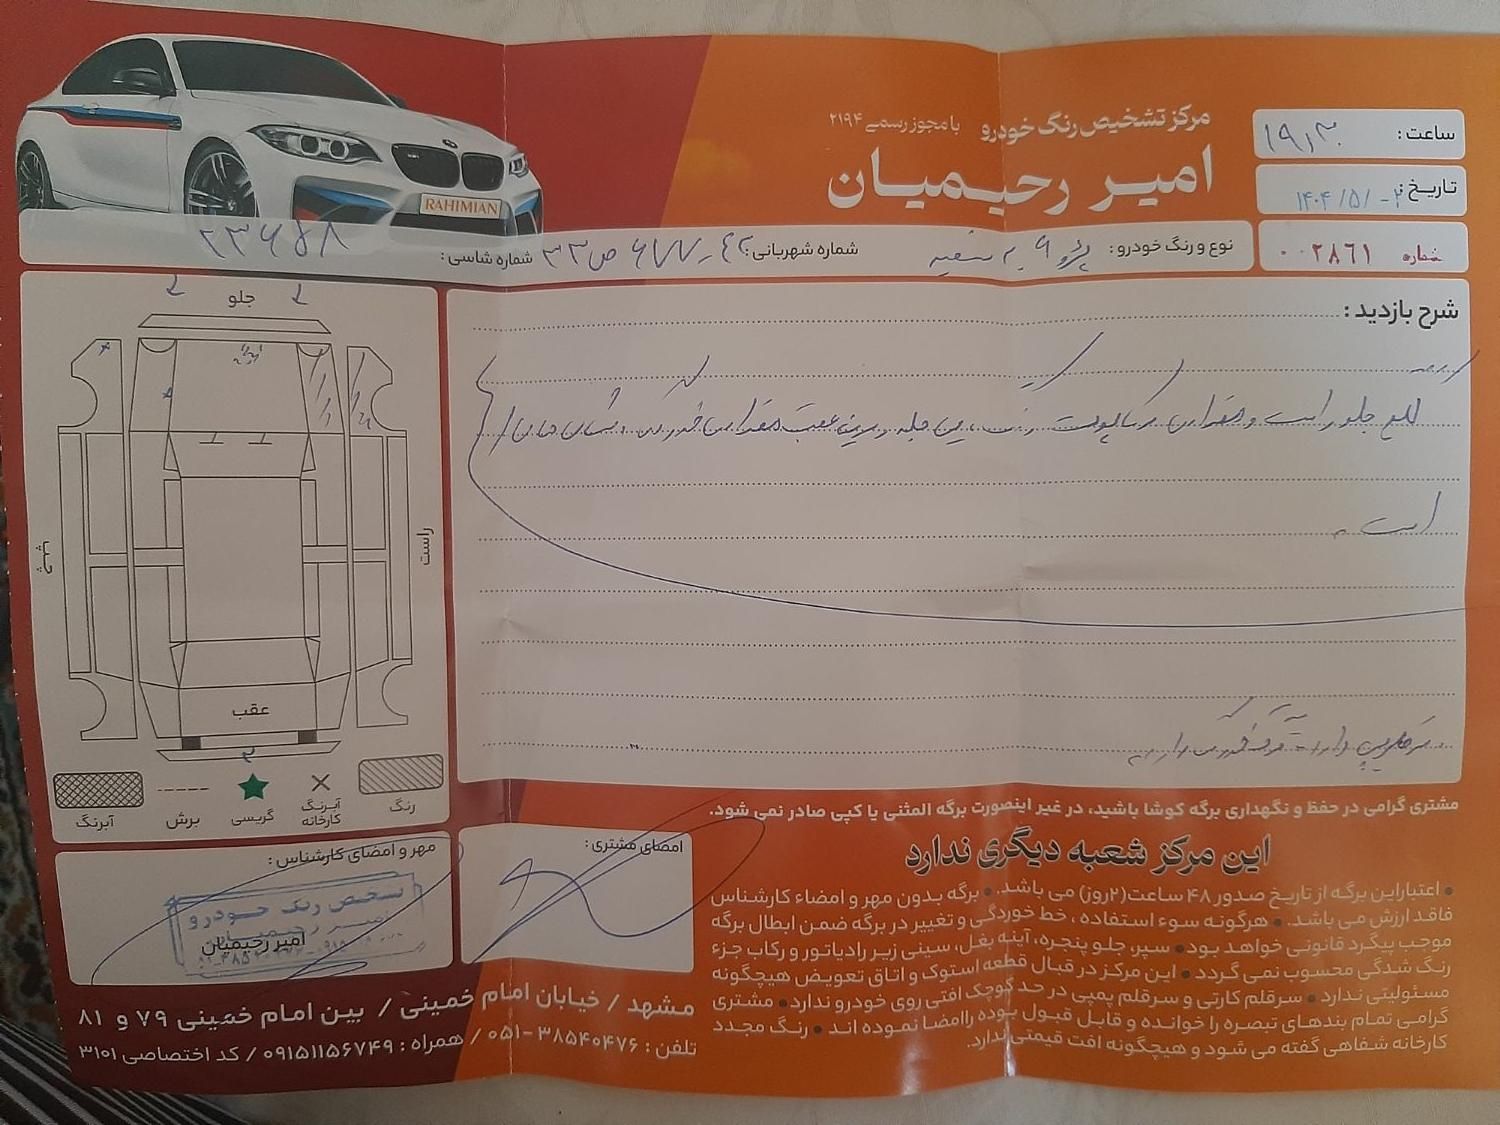 مرکز تشخیص رنگ خودرو با مجوز رسمی ۲۱۹۴
امیر رحیمیان
RAHIMIAN
ساعت: ۱۹٫۳۰
تاریخ: ۱۴۰۴/۵/۲۰
شماره ۰۰۲۸۶۱
نوع و رنگ خودرو: پژو سفید
شماره شهربانی:
شماره شاسی:
جلو
راست
چپ
عقب
رنگ
آبرنگ کارخانه
گریسی
برش
آبرنگ
شرح بازدید:
گلگیر جلو راست و
است
مشتری گرامی در حفظ و نگهداری برگه کوشا باشید، در غیر اینصورت برگه المثنی یا کپی صادر نمی شود.
این مرکز شعبه دیگری ندارد
• اعتبار این برگه از تاریخ صدور ۴۸ ساعت(۲روز) می باشد. • برگه بدون مهر و امضاء کارشناس
فاقد ارزش می باشد. • هرگونه سوء استفاده، خط خوردگی و تغییر در برگه ضمن ابطال برگه
موجب پیگرد قانونی خواهد بود • سپر، جلو پنجره، آینه بغل، سینی زیر رادیاتور و رکاب جزء
رنگ شدگی محسوب نمی گردد • این مرکز در قبال قطعه استوک و اتاق تعویض هیچگونه
مسئولیتی ندارد • سرقلم کارتی و سرقلم پمپی در حد کوچک افتی روی خودرو ندارد • مشتری
گرامی تمام بندهای تبصره را خوانده و قابل قبول بوده را امضا نموده اند • رنگ مجدد
کارخانه شفاهی گفته می شود و هیچگونه افت قیمتی ندارد.
امضای مشتری:
مهر و امضای کارشناس:
تشخیص رنگ خودرو
امیر رحیمیان
امیر رحیمیان
مشهد / خیابان امام خمینی / بین امام خمینی ۷۹ و ۸۱
تلفن: ۳۸۵۴۰۴۷۶-۰۵۱ / همراه: ۰۹۱۵۱۱۵۶۷۴۹ / کد اختصاصی ۳۱۰۱